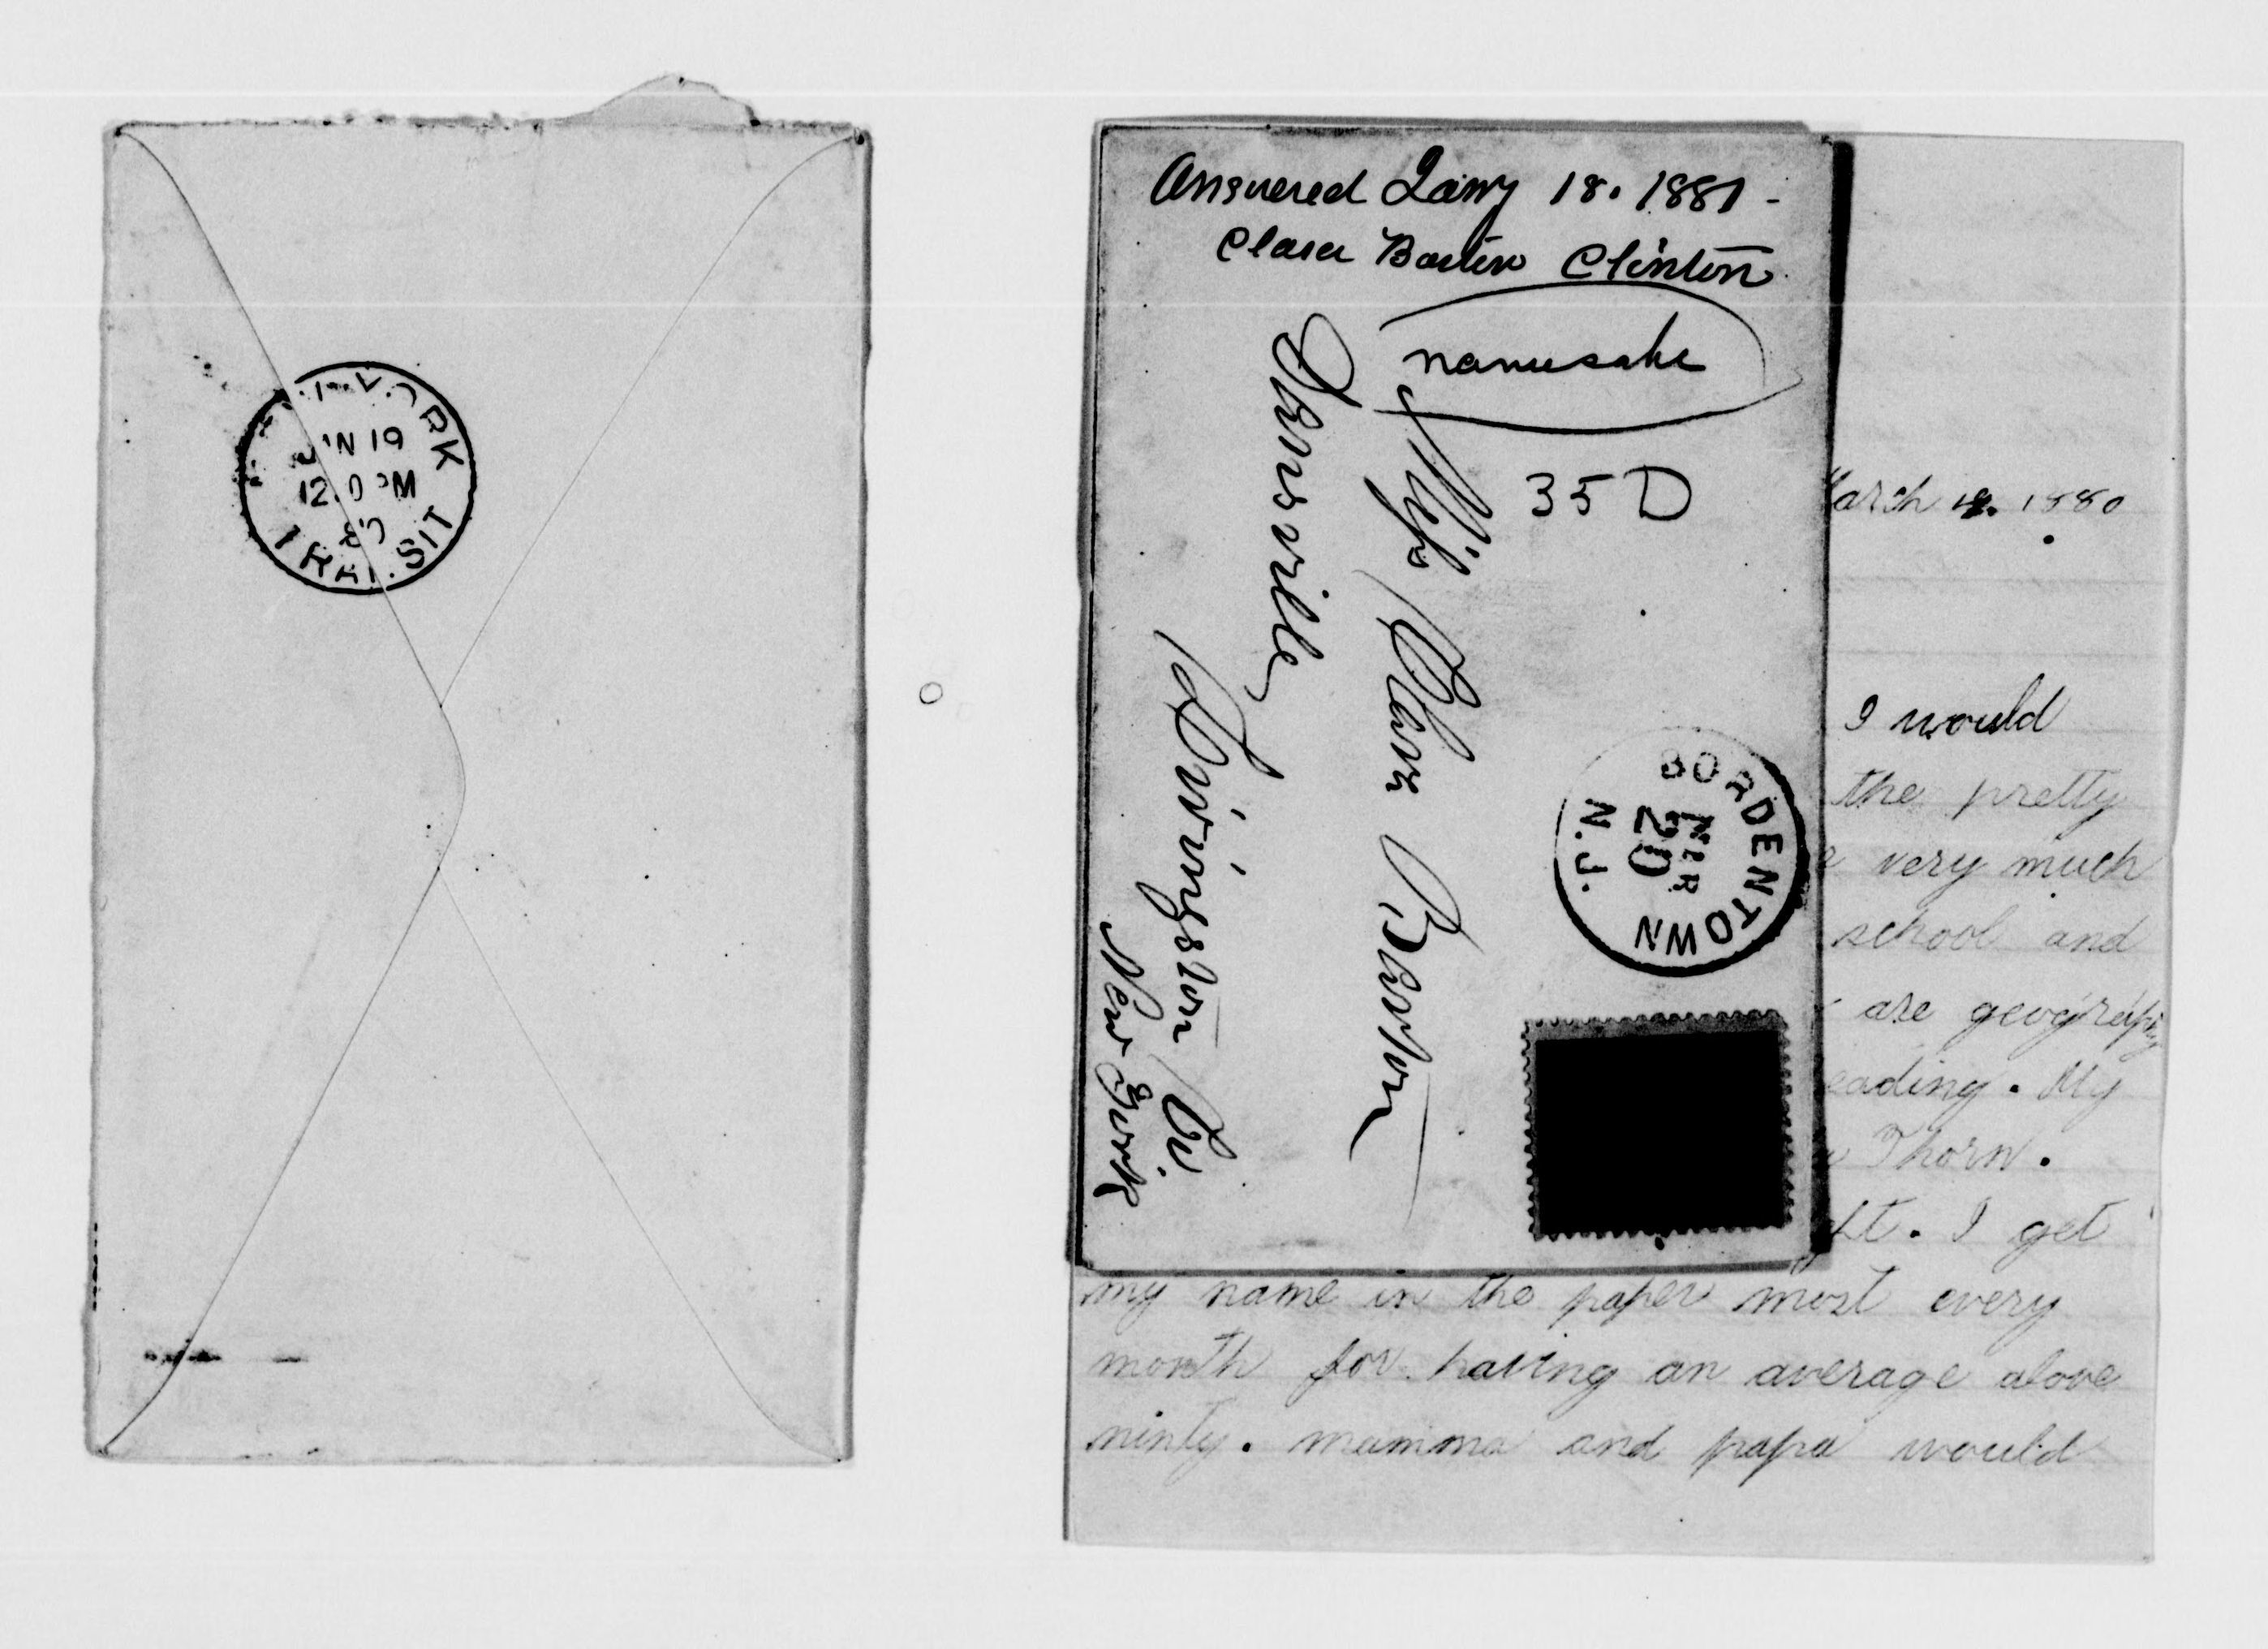 NEW YORK
JAN 19
12 0 PM
80
TRANSIT
Answered Jany 18. 1881 -
Clara Barton Clinton
namesake
35 D
Miss Clara Barton
Dansville
Livingston Co.
New York
BORDENTOWN
MAR
20
N.J.
March 18. 1880
I would
the pretty
very much
school and
are geography
eading. My
Thorn.
I get
my name in the paper most every
month for having an average above
ninty. mamma and papa would